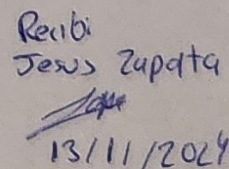 Recibi
Jesus Zapata
13/11/2024